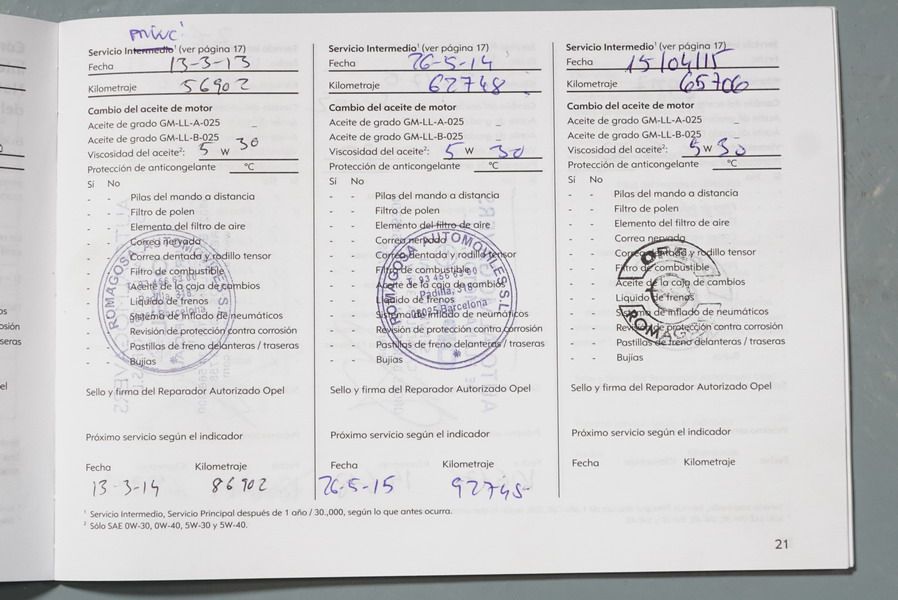 Servicio Intermedio¹ (ver página 17)
Fecha 13-3-13
Kilometraje 56902
Cambio del aceite de motor
Aceite de grado GM-LL-A-025 _
Aceite de grado GM-LL-B-025
Viscosidad del aceite²: 5 W 30
Protección de anticongelante °C
Sí No
- - Pilas del mando a distancia
- - Filtro de polen
- - Elemento del filtro de aire
- - Correa nervada
- - Correa dentada y rodillo tensor
- - Filtro de combustible
- - Aceite de la caja de cambios
- - Líquido de frenos
- - Sistema de inflado de neumáticos
- - Revisión de protección contra corrosión
- - Pastillas de freno delanteras / traseras
- - Bujías
Sello y firma del Reparador Autorizado Opel
Próximo servicio según el indicador
Fecha Kilometraje
13-3-14 86902
Servicio Intermedio¹ (ver página 17)
Fecha 26-5-14
Kilometraje 62748
Cambio del aceite de motor
Aceite de grado GM-LL-A-025 _
Aceite de grado GM-LL-B-025
Viscosidad del aceite²: 5 W 30
Protección de anticongelante °C
Sí No
- - Pilas del mando a distancia
- - Filtro de polen
- - Elemento del filtro de aire
- - Correa nervada
- - Correa dentada y rodillo tensor
- - Filtro de combustible
- - Aceite de la caja de cambios
- - Líquido de frenos
- - Sistema de inflado de neumáticos
- - Revisión de protección contra corrosión
- - Pastillas de freno delanteras / traseras
- - Bujías
ROMAGOSA AUTOMOVILES S.L.
Padilla, 318
08025 Barcelona
Sello y firma del Reparador Autorizado Opel
Próximo servicio según el indicador
Fecha Kilometraje
26-5-15 92748
Servicio Intermedio¹ (ver página 17)
Fecha 15/04/15
Kilometraje 65706
Cambio del aceite de motor
Aceite de grado GM-LL-A-025 _
Aceite de grado GM-LL-B-025
Viscosidad del aceite²: 5 W 30
Protección de anticongelante °C
Sí No
- - Pilas del mando a distancia
- - Filtro de polen
- - Elemento del filtro de aire
- - Correa nervada
- - Correa dentada y rodillo tensor
- - Filtro de combustible
- - Aceite de la caja de cambios
- - Líquido de frenos
- - Sistema de inflado de neumáticos
- - Revisión de protección contra corrosión
- - Pastillas de freno delanteras / traseras
- - Bujías
Sello y firma del Reparador Autorizado Opel
Próximo servicio según el indicador
Fecha Kilometraje
¹ Servicio Intermedio, Servicio Principal después de 1 año / 30.,000, según lo que antes ocurra.
² Sólo SAE 0W-30, 0W-40, 5W-30 y 5W-40.
21